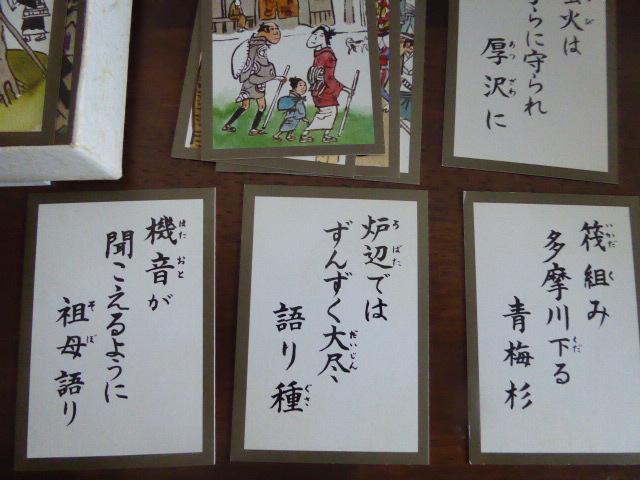 火は
らに守られ
厚沢に
筏組み
多摩川下る
青梅杉
炉辺では
ずんずく大尽、
語り種
機音が
聞こえるように
祖母語り